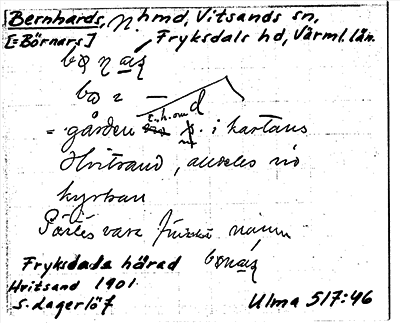 Bernhards, n. hmd, Vitsands sn,
[=Börnars] Fryksdals hd, Värml. län.
= gården i kartans
Hvitsand, alldeles vid
kyrkan
Påstås vara finskt namn
Fryksdals härad
Hvitsand 1901
S. Lagerlöf
Ulma 517:46